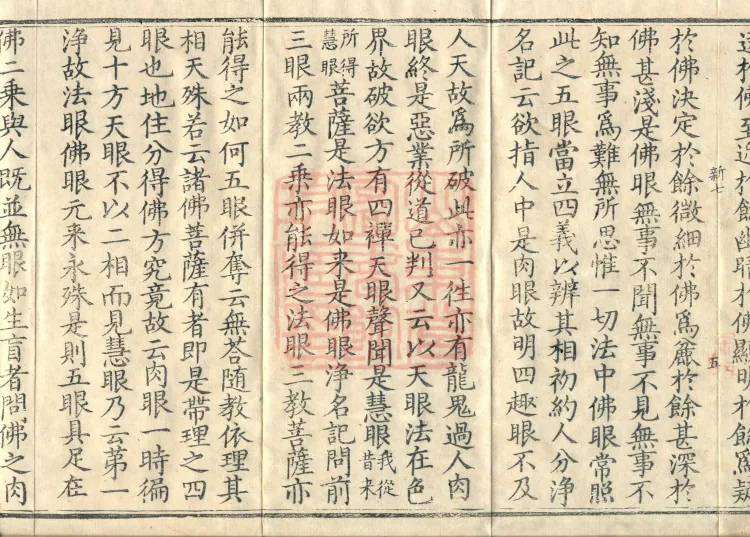 遠於佛至近於餘幽暗於佛顯明於餘爲疑
於佛決定於餘微細於佛爲麁於餘甚深於
新七
五
佛甚淺是佛眼無事不聞無事不見無事不
知無事爲難無所思惟一切法中佛眼常照
此之五眼當立四義以辨其相初約人分淨
名記云欲指人中是肉眼故明四趣眼不及
人天故爲所破此亦一往亦有龍鬼過人肉
眼終是惡業從道已判又云以天眼法在色
界故破欲方有四禪天眼聲聞是慧眼我從昔来
所得慧眼菩薩是法眼如来是佛眼淨名記問前
三眼兩教二乗亦能得之法眼三教菩薩亦
能得之如何五眼併奪云無荅随教依理其
相天殊若云諸佛菩薩有者即是帶理之四
眼也地住分得佛方究竟故云肉眼一時徧
見十方天眼不以二相而見慧眼乃云第一
淨故法眼佛眼元来永殊是則五眼具足在
佛二乗與人既並無眼如生盲者問佛之肉